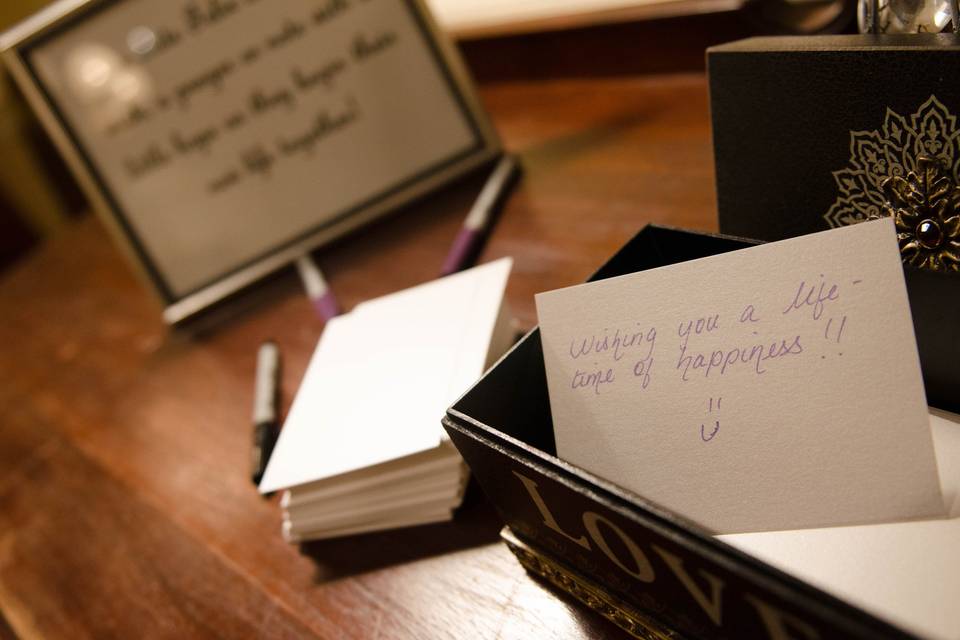 with
a
we make
With hope as they begin their
new life together!
Wishing you a life-
time of happiness !!
LOVE